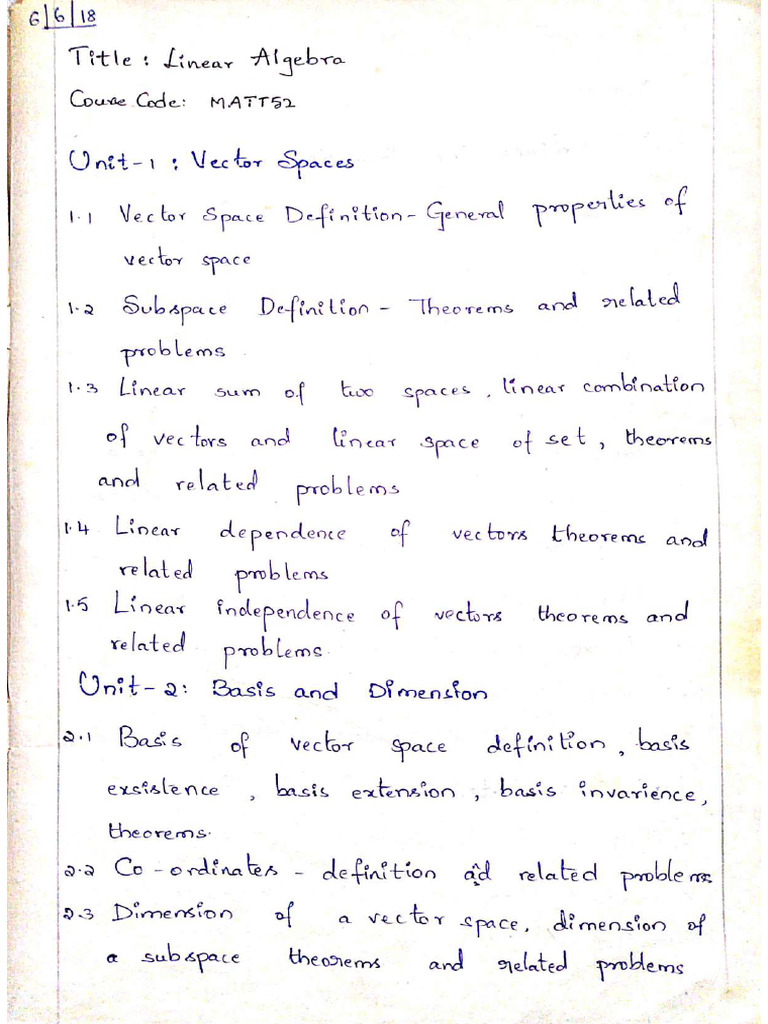 6/6/18
Title : Linear Algebra
Course Code: MATT52
Unit-1 : Vector Spaces
1.1 Vector Space Definition - General properties of
vector space
1.2 Subspace Definition - Theorems and related
problems
1.3 Linear sum of two spaces, linear combination
of vectors and linear space of set, theorems
and related problems
1.4 Linear dependence of vectors theorems and
related problems
1.5 Linear independence of vectors theorems and
related problems.
Unit-2: Basis and Dimension
2.1 Basis of vector space definition, basis
exsistence, basis extension, basis invarience,
theorems.
2.2 Co-ordinates - definition and related problems
2.3 Dimension of a vector space, dimension of
a subspace theorems and related problems